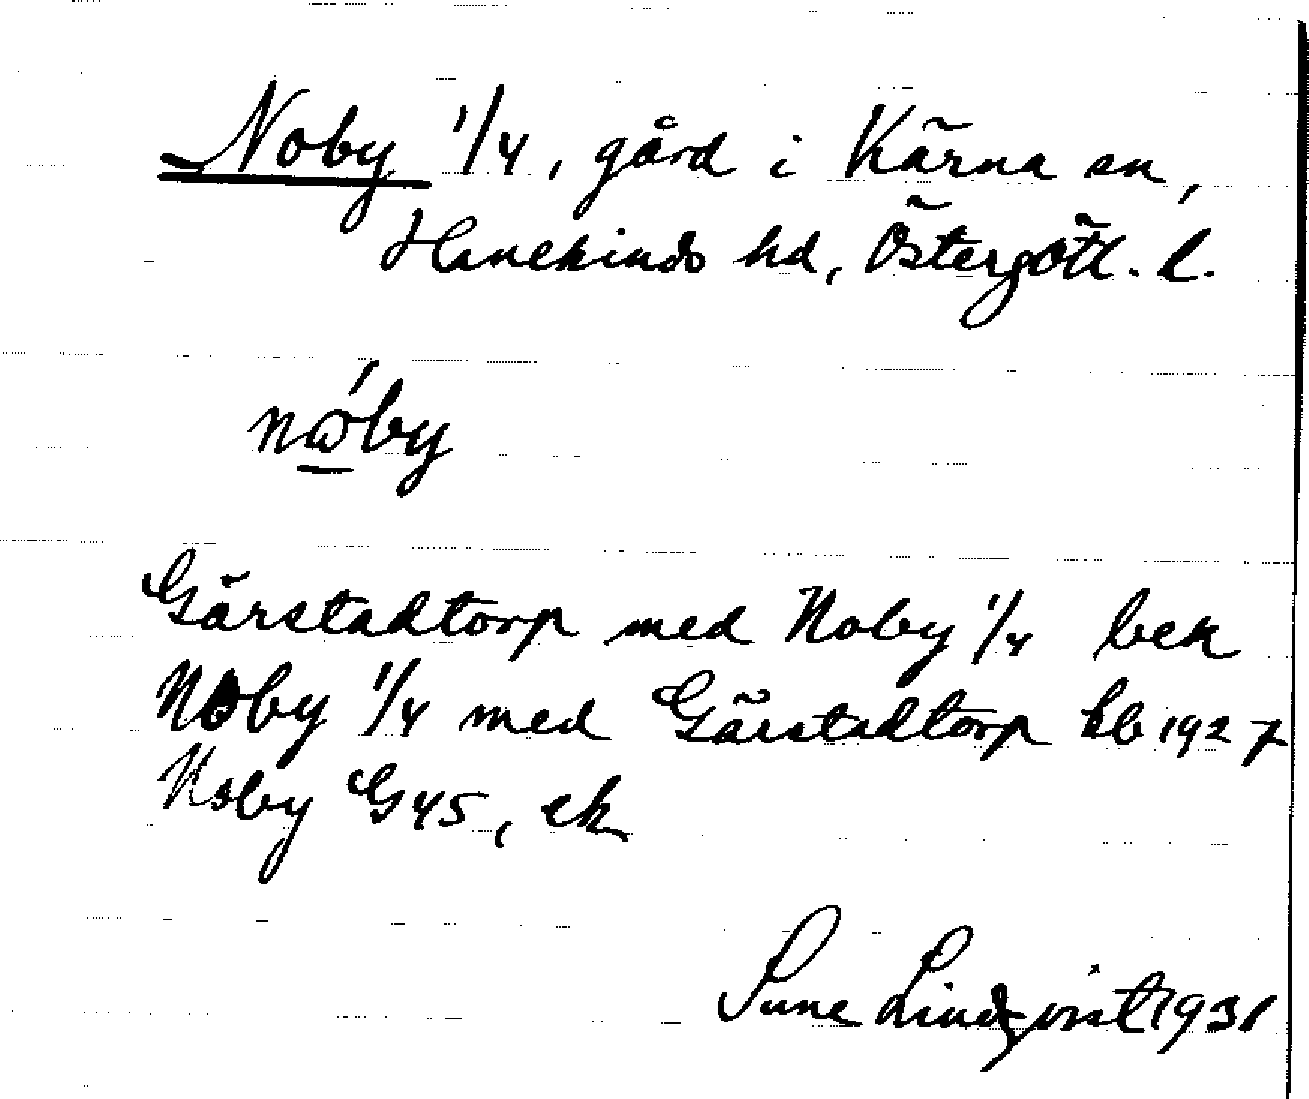 Noby 1/4, gård i Kärna sn,
Hanekinds hd, Östergötl. l.
nωby
Gärstadtorp med Noby 1/4 bek
Noby 1/4 med Gärstadtorp kb 1927
Noby G45, ek
Sune Lindqvist 1931